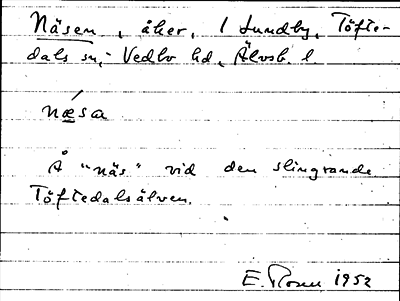 Näsen, åker, 1 Lundby, Töfte-
dals sn, Vedbo hd, Älvsb. l
næ´sa
Å "näs" vid den slingrande
Töftedalsälven.
E. Rosen 1952